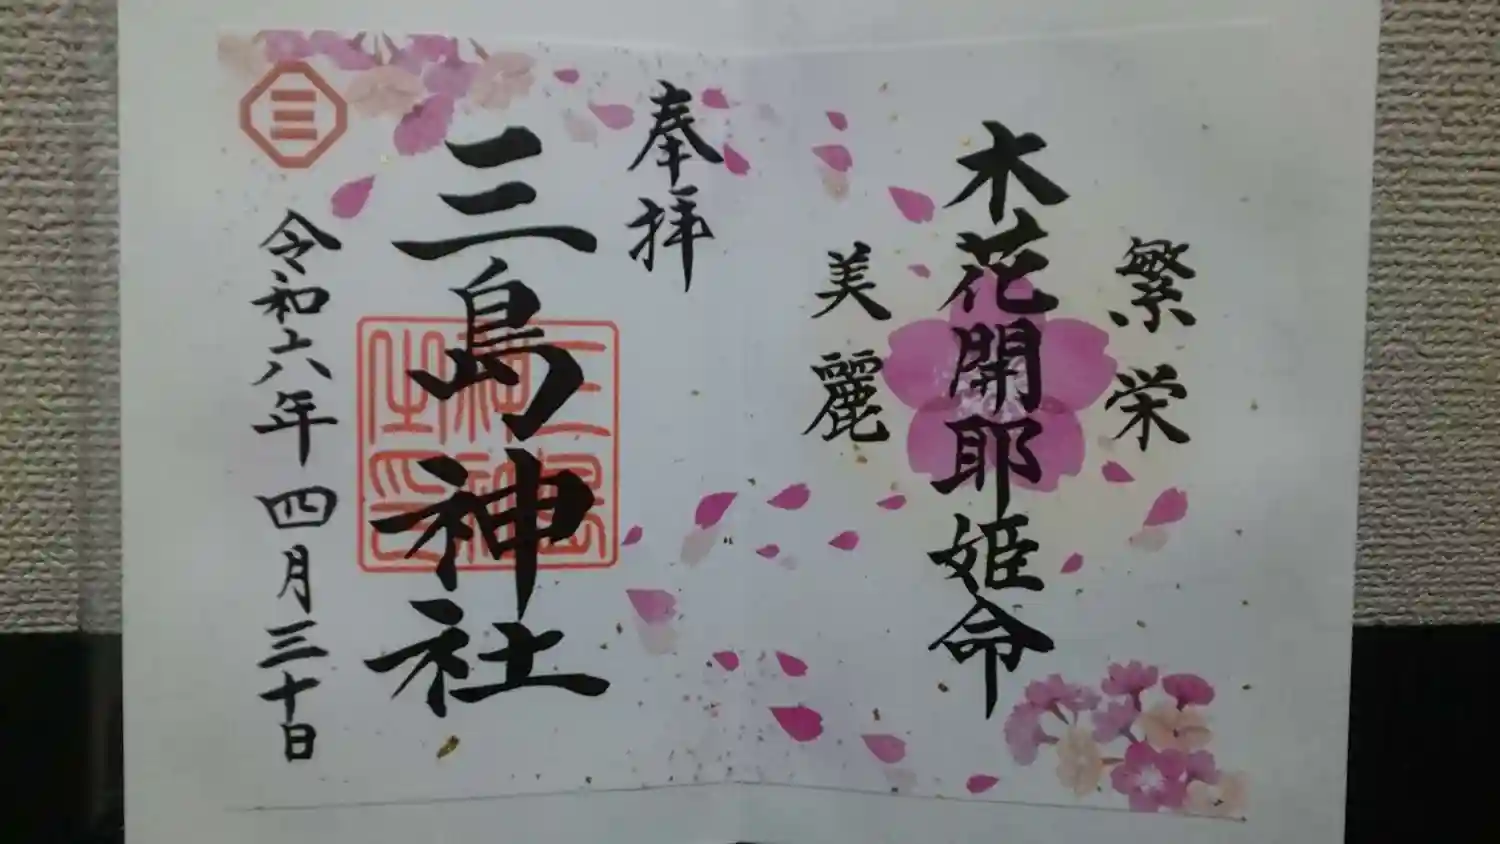 繁栄
木花開耶姫命
美麗
奉拝
三島神社
三島神社之印
三
令和六年四月三十日